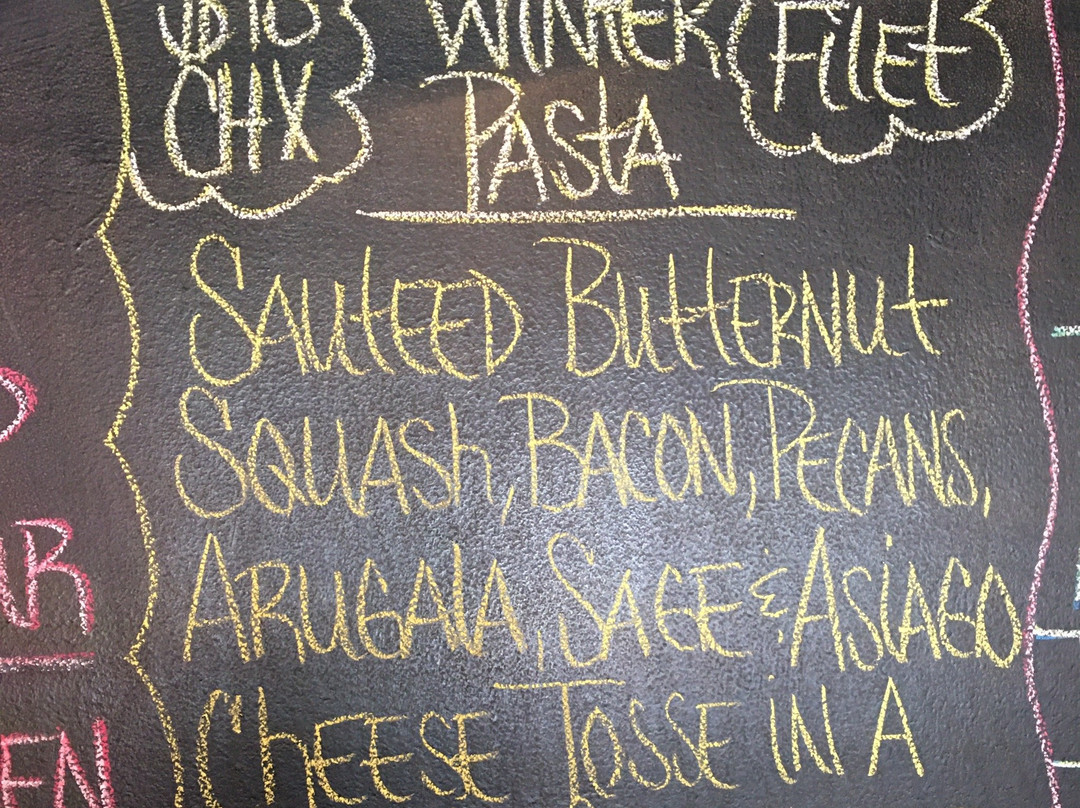 CHX
WINTER
FILET
PASTA
SAUTEED BUTTERNUT
SQUASH, BACON, PECANS,
ARUGALA, SAGE & ASIAGO
CHEESE TOSSE IN A